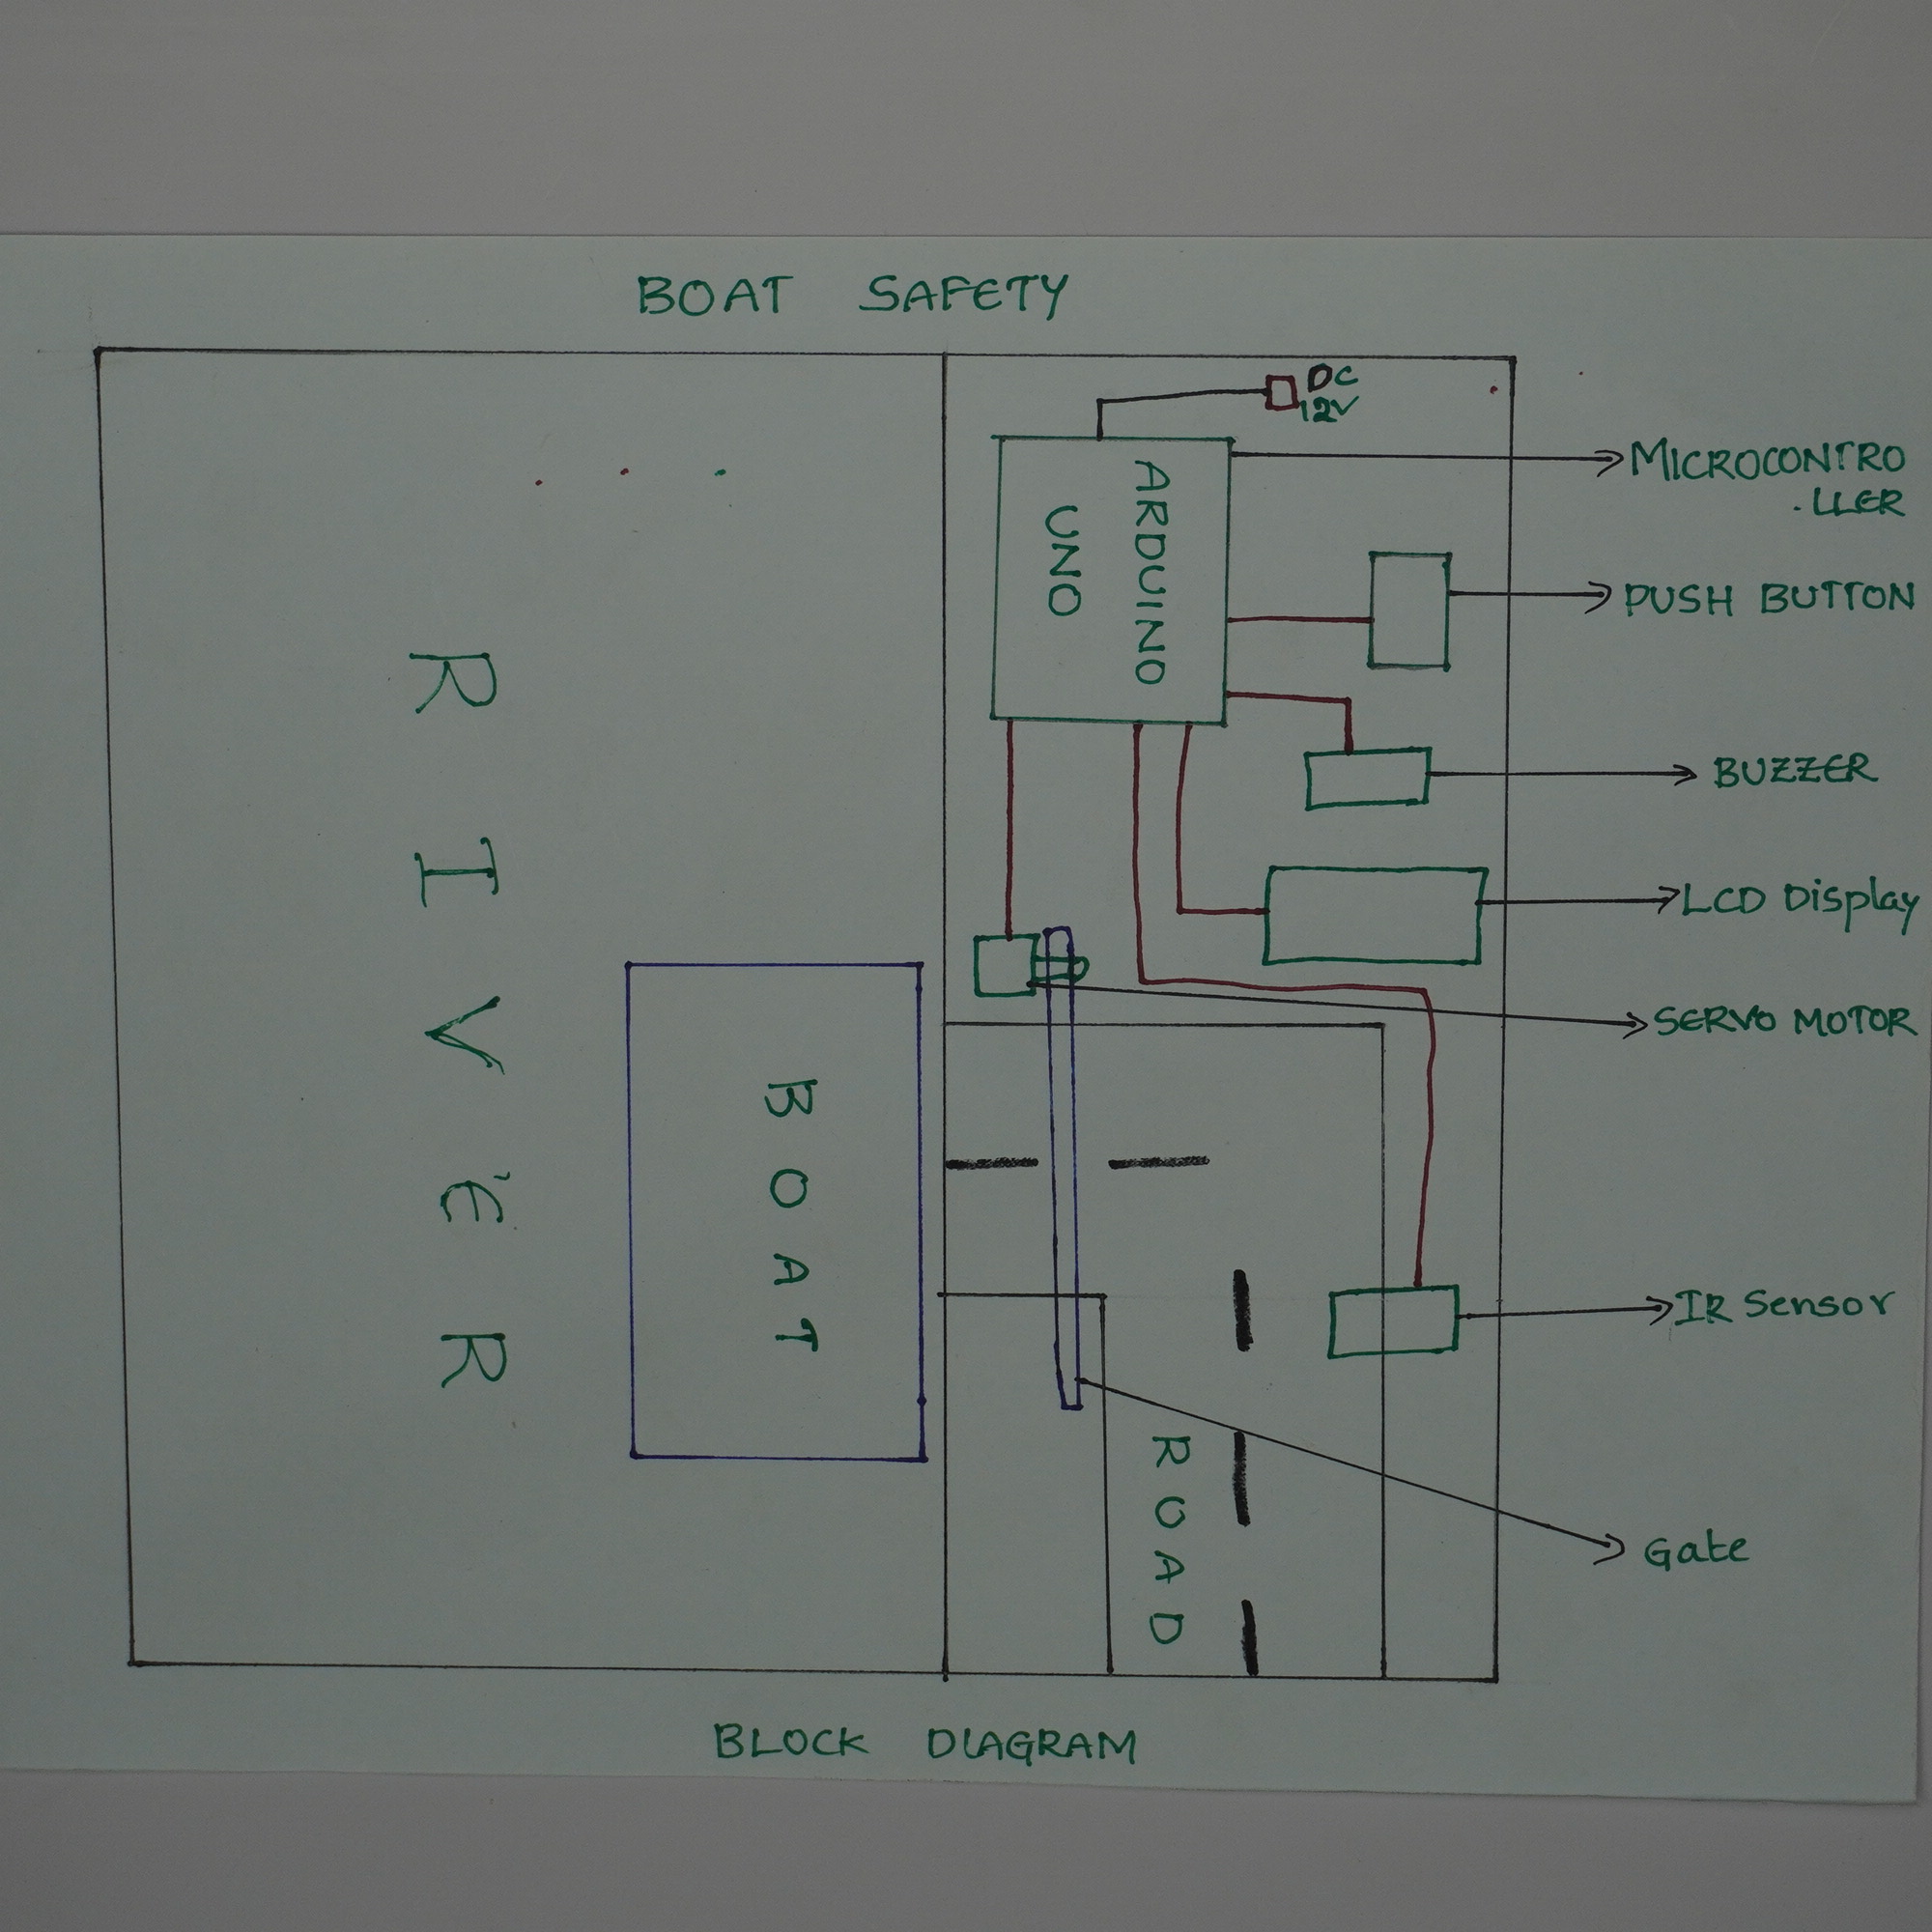 BOAT SAFETY
DC
12V
MICROCONTRO
.LLER
ARDUINO
UNO
PUSH BUTTON
BUZZER
LCD Display
SERVO MOTOR
RIVER
BOAT
IR Sensor
ROAD
Gate
BLOCK DIAGRAM